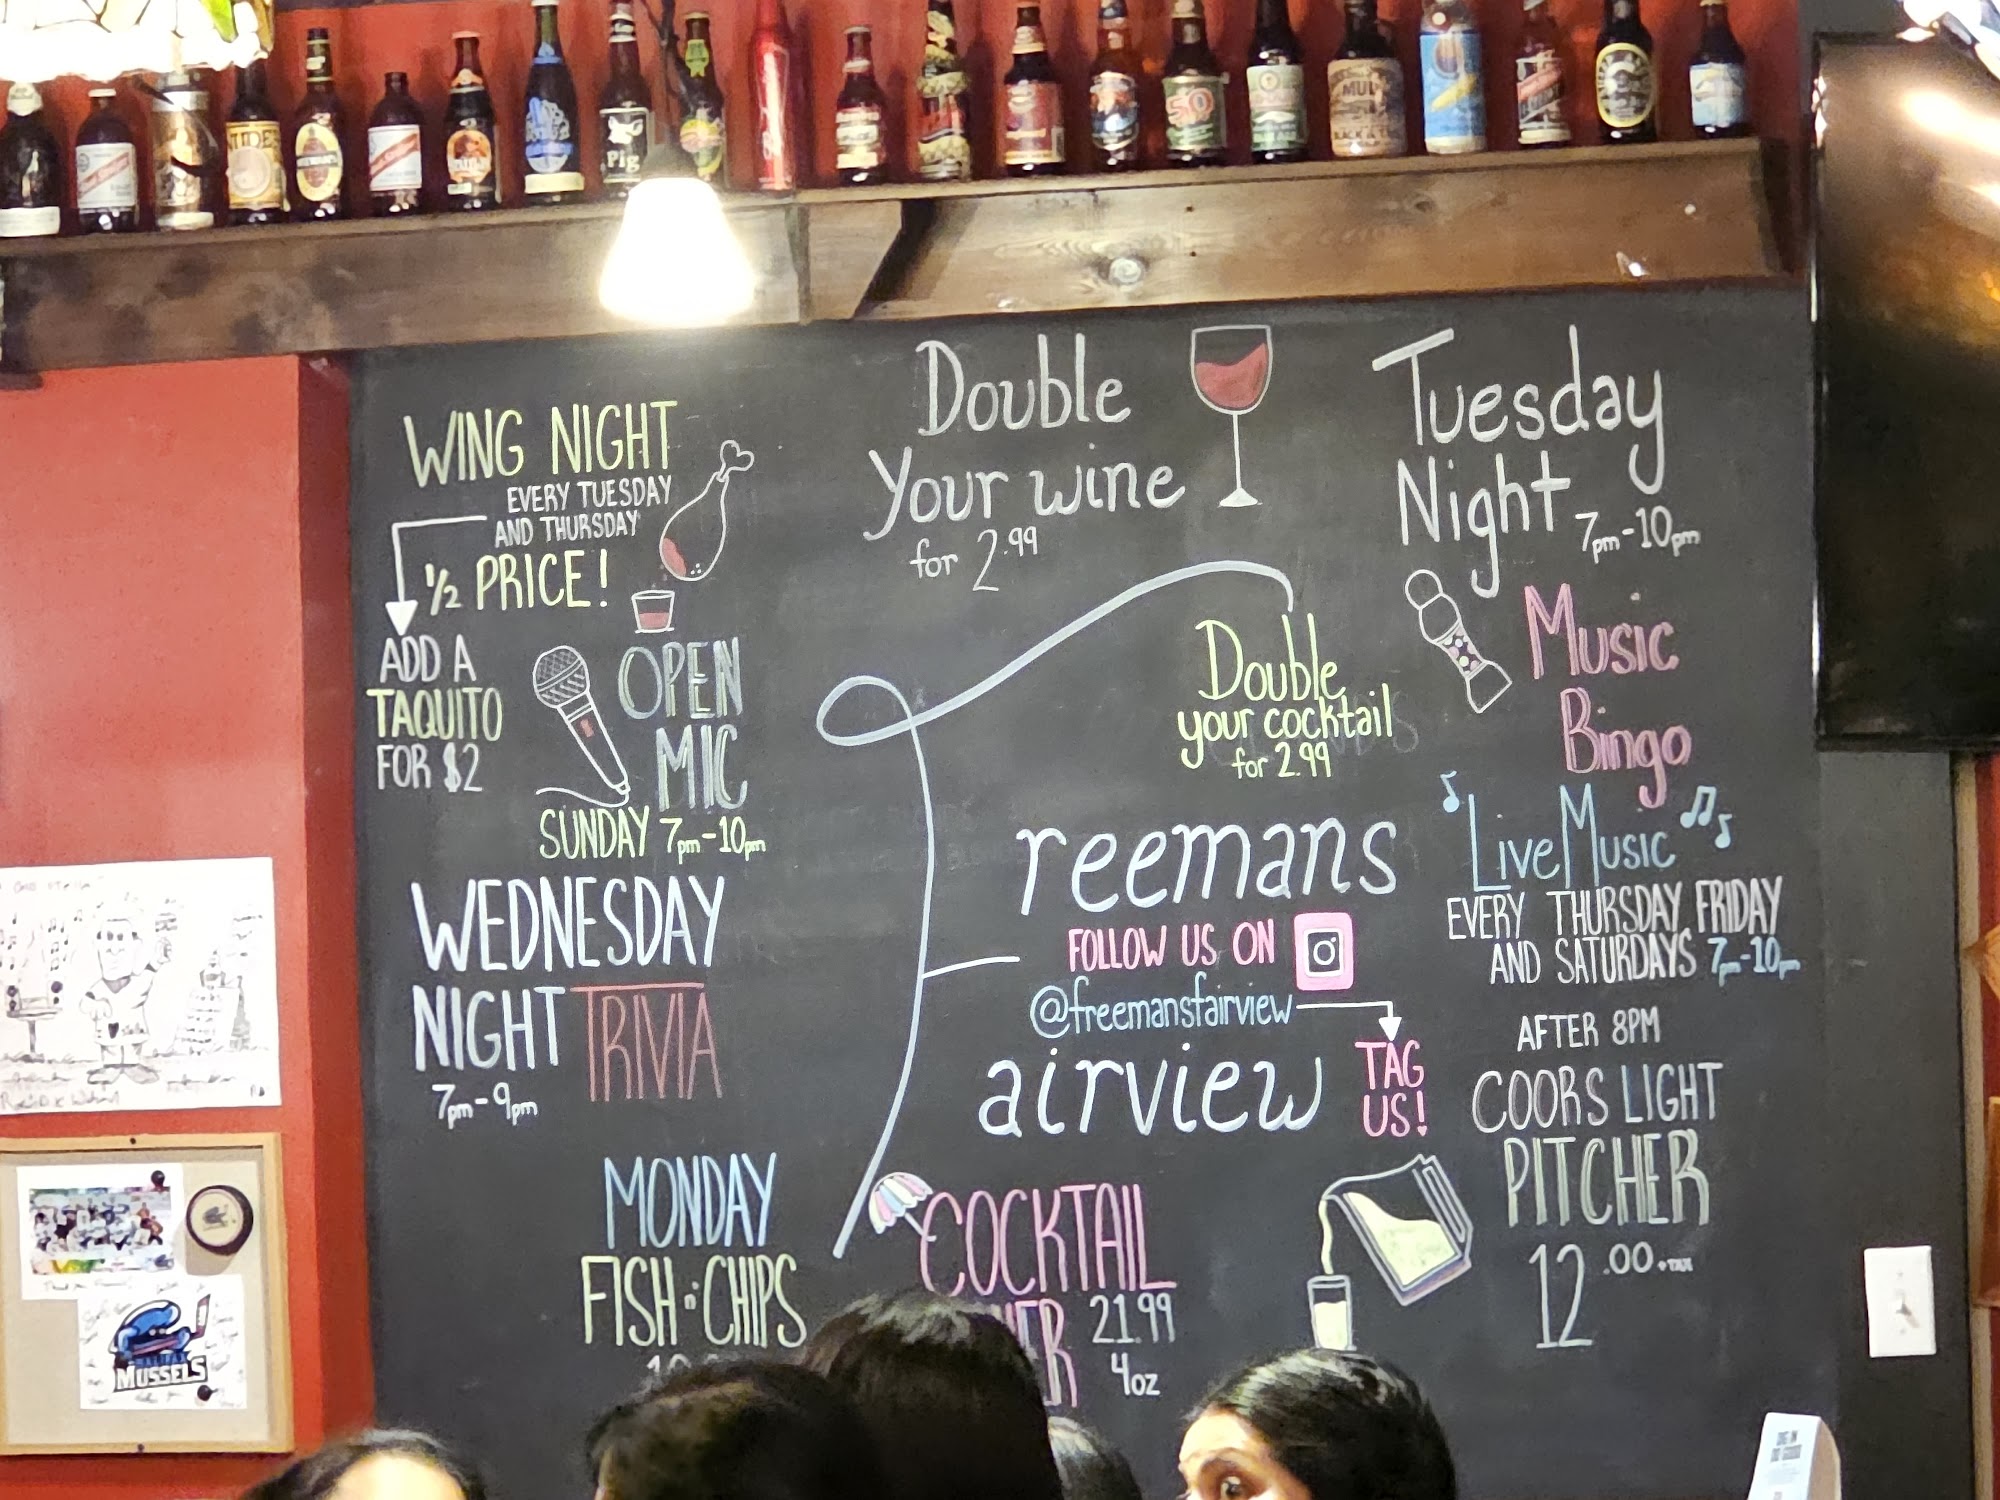 Pig
50
WING NIGHT
EVERY TUESDAY
AND THURSDAY
1/2 PRICE!
ADD A
TAQUITO
FOR $2
OPEN
MIC
SUNDAY 7pm-10pm
WEDNESDAY
NIGHT TRIVIA
7pm-9pm
MONDAY
FISH n CHIPS
Double
Your wine
for 2.99
Double
your cocktail
for 2.99
reemans
FOLLOW US ON
@freemansfairview
airview
TAG
US!
COCKTAIL
21.99
4oz
Tuesday
Night 7pm-10pm
Music
Bingo
Live Music
EVERY THURSDAY, FRIDAY
AND SATURDAYS 7pm-10pm
AFTER 8PM
COORS LIGHT
PITCHER
12.00+TAX
MUSSELS